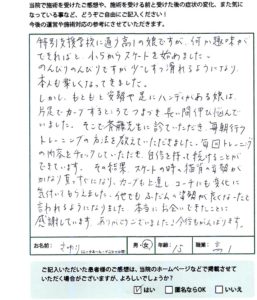 当院で施術を受けたご感想や、施術を受ける前と受けた後の症状の変化、また気に
なっている事など、どうぞご自由にご記入ください！
今後の運営や施術対応の参考にさせていただきます。
特別支援学校に通う高1の娘ですが、何か趣味が
できればと、小5からスケートを始めました。
のんびりのんびりですが 少しずつ滑れるようになり
本人も楽しくなってきました。
しかし、もともと姿勢や足にハンディがある娘は、
片足でカーブするとうでつまづき 長い間伸び悩んで
いました。そこで斎藤先生に診ていただき、毎朝行う
トレーニングの方法を教えていただきました。毎回トレーニング
の内容をチェックしていただき、自信を持って続けることが
できています。その結果 スケートの時の猫背の姿勢が
かなり真っすぐになり、カーブも上達し コーチにも変化に
気付いてもらえました。他でもふだんの姿勢が良くなったと
言われるようになりました。本当にお会いできたことに
感謝しています。ありがとうございました♪今後もがんばります。
お名前：
性別：
男・女
年齢：15
職業：高1
ご記入いただいた患者様のご感想は、当院のホームページなどで掲載させて
いただく場合がございますが、よろしいでしょうか？
はい
匿名ならOK
いいえ